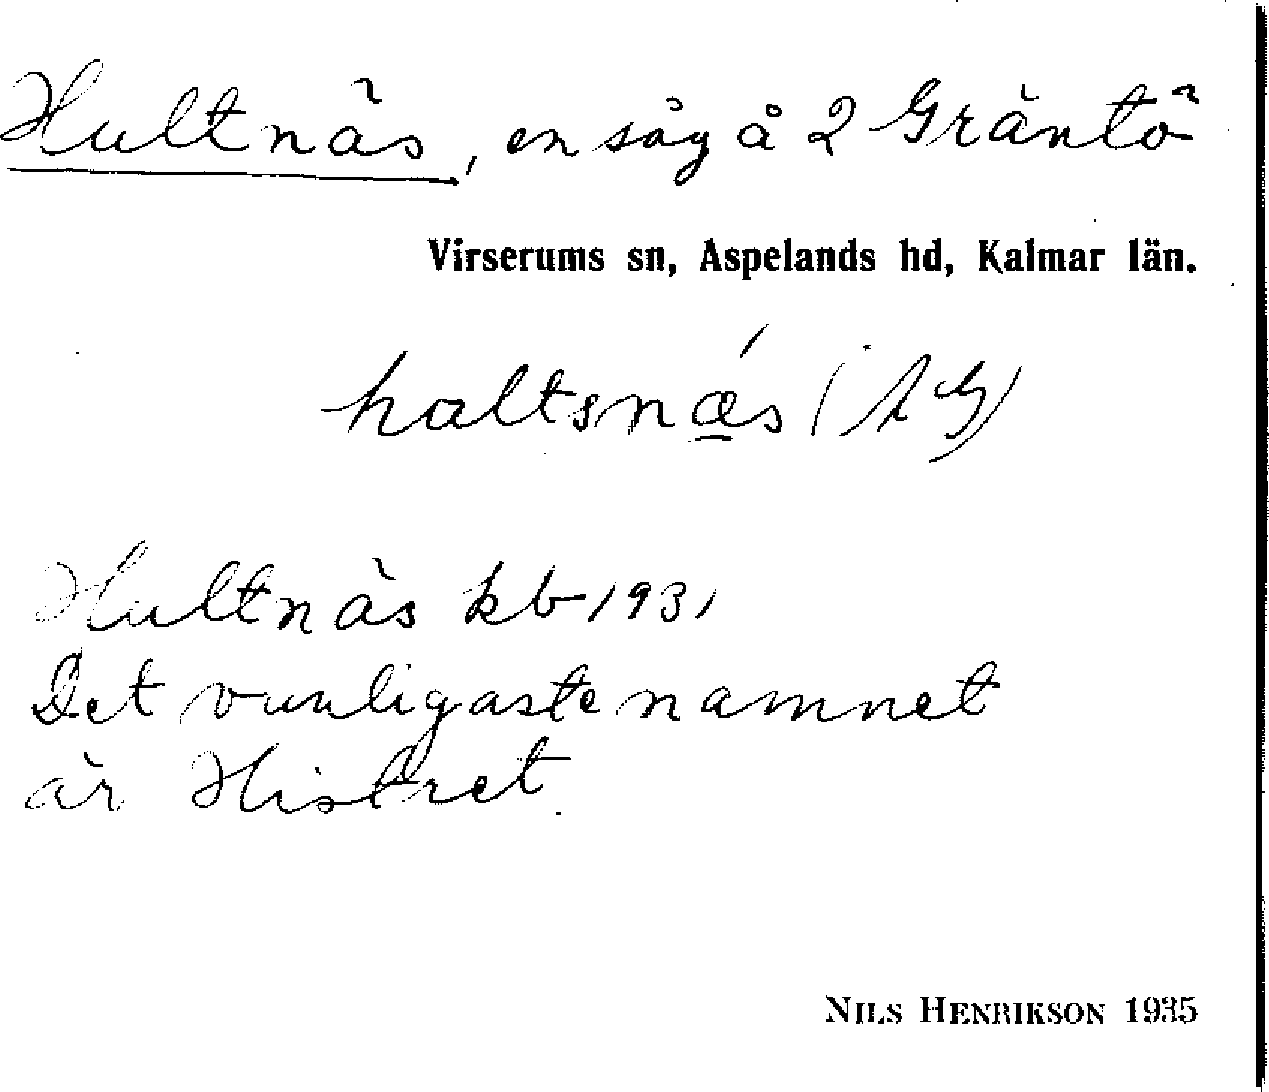 Hultnäs, en såg å 2 Gräntö
Virserums sn, Aspelands hd, Kalmar län.
haltsnǽs (AG)
Hultnäs kb 1931
Det vanligaste namnet
är
NILS HENRIKSON 1935